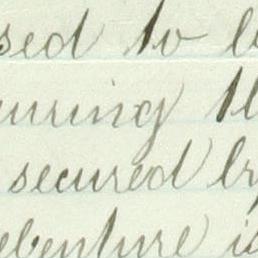 sed to b
uring th
secured by
ebenture is